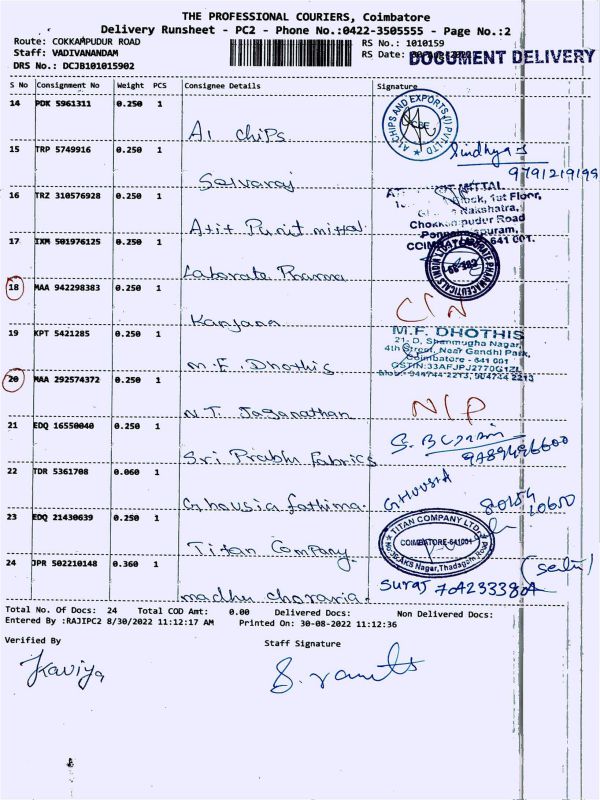 THE PROFESSIONAL COURIERS, Coimbatore
Delivery Runsheet - PC2 - Phone No.:0422-3505555 - Page No.:2
Route: COKKAMPUDUR ROAD
RS No.: 1010159
Staff: VADIVANANDAM
RS Date:
DOCUMENT DELIVERY
DRS No.: DCJB101015902
S No Consignment No Weight PCS Consignee Details Signature
14 PDK 5961311 0.250 1
A1 chips
A1 CHIPS AND EXPORTS (I) PVT LTD
CBE
15 TRP 5749916 0.250 1
Sindhya
9791219199
Selvaraj
16 TRZ 310576928 0.250 1
MITTAL
Block, 1st Floor,
Nakshatra,
Chokkampudur Road
COIMBATORE-641 001.
Atit Punit mittal
17 IXM 501976125 0.250 1
Laborate Pharma
LABORATE PHARMACEUTICALS INDIA LTD
18 MAA 942298383 0.250 1
C/N
Kanjana
19 KPT 5421285 0.250 1
M.F. DHOTHIS
21, D, Shanmugha Nagar,
4th Street, Near Gandhi Park,
Coimbatore - 641 001
GSTIN:33AFJPJ2770G1ZL
M.F. Dhothis
20 MAA 292574372 0.250 1
N/P
N.T. Jaganathan
21 EDQ 16550040 0.250 1
Sri Prabhu fabrics
22 TDR 5361708 0.060 1
GHOUSIA
80154
10650
Ghousia fathima
23 EDQ 21430639 0.250 1
TITAN COMPANY LTD
COIMBATORE-641001
Titan Company.
24 JPR 502210148 0.360 1
Suraj
madhu choraria
Total No. Of Docs: 24 Total COD Amt: 0.00 Delivered Docs: Non Delivered Docs:
Entered By :RAJIPC2 8/30/2022 11:12:17 AM Printed On: 30-08-2022 11:12:36
Verified By Staff Signature
Kaviya